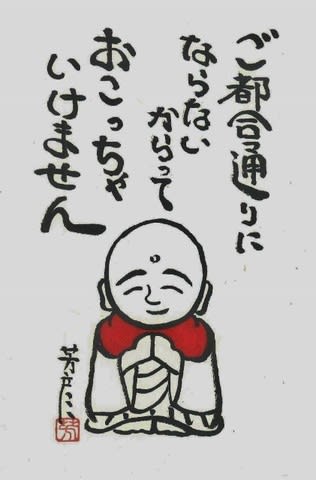 ご都合通りに
ならない
からって
おこっちゃ
いけません
芳